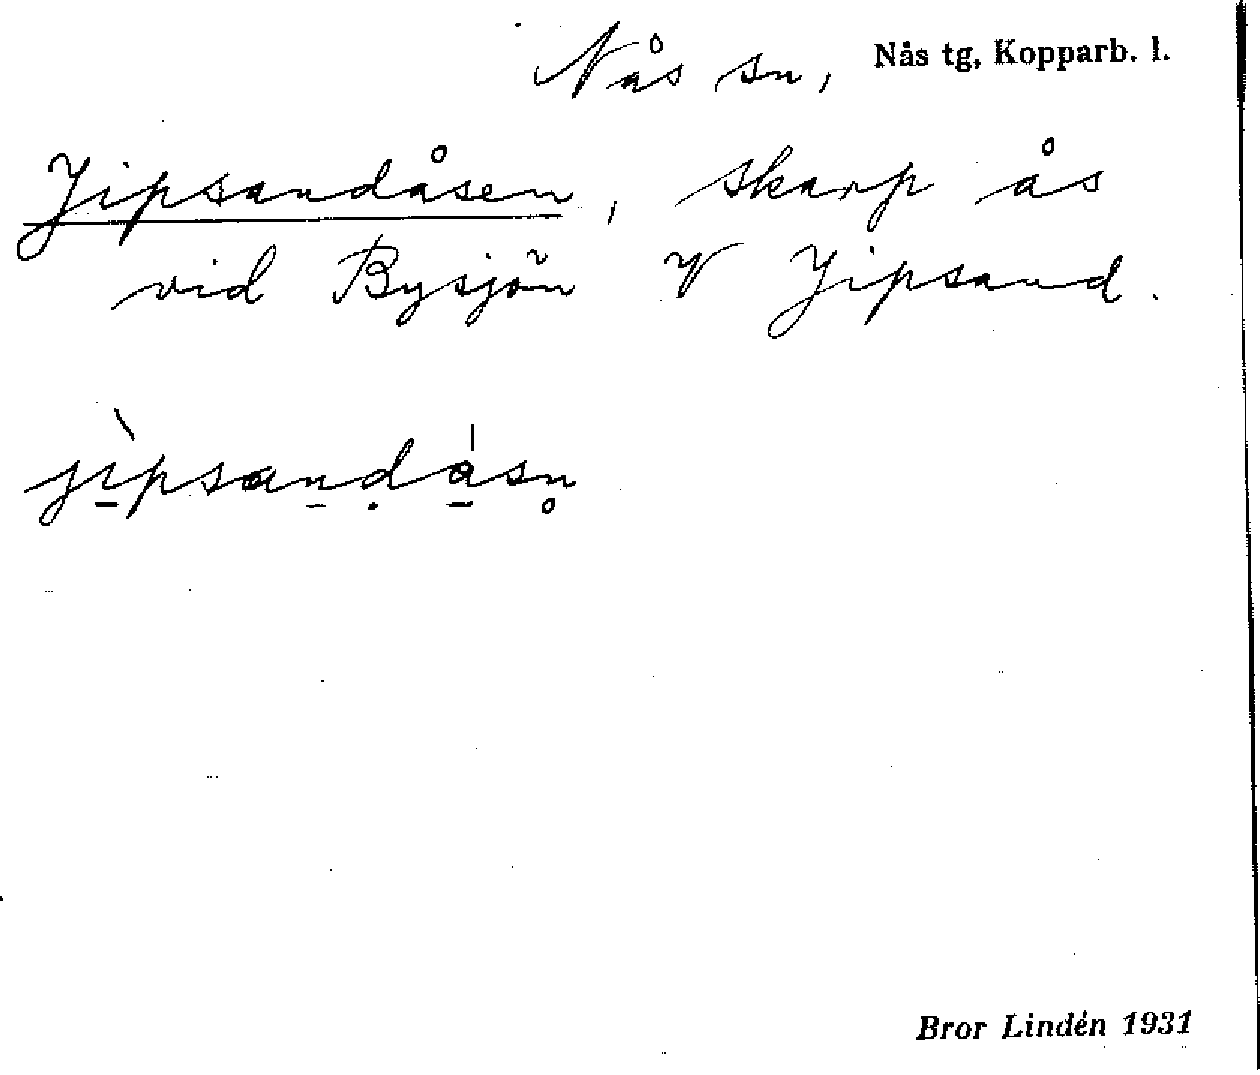 Nås sn, Nås tg, Kopparb. l.
Jipsandåsen, skarp ås
vid Bysjön V Jipsand.
jìpsandåsn
Bror Lindén 1931